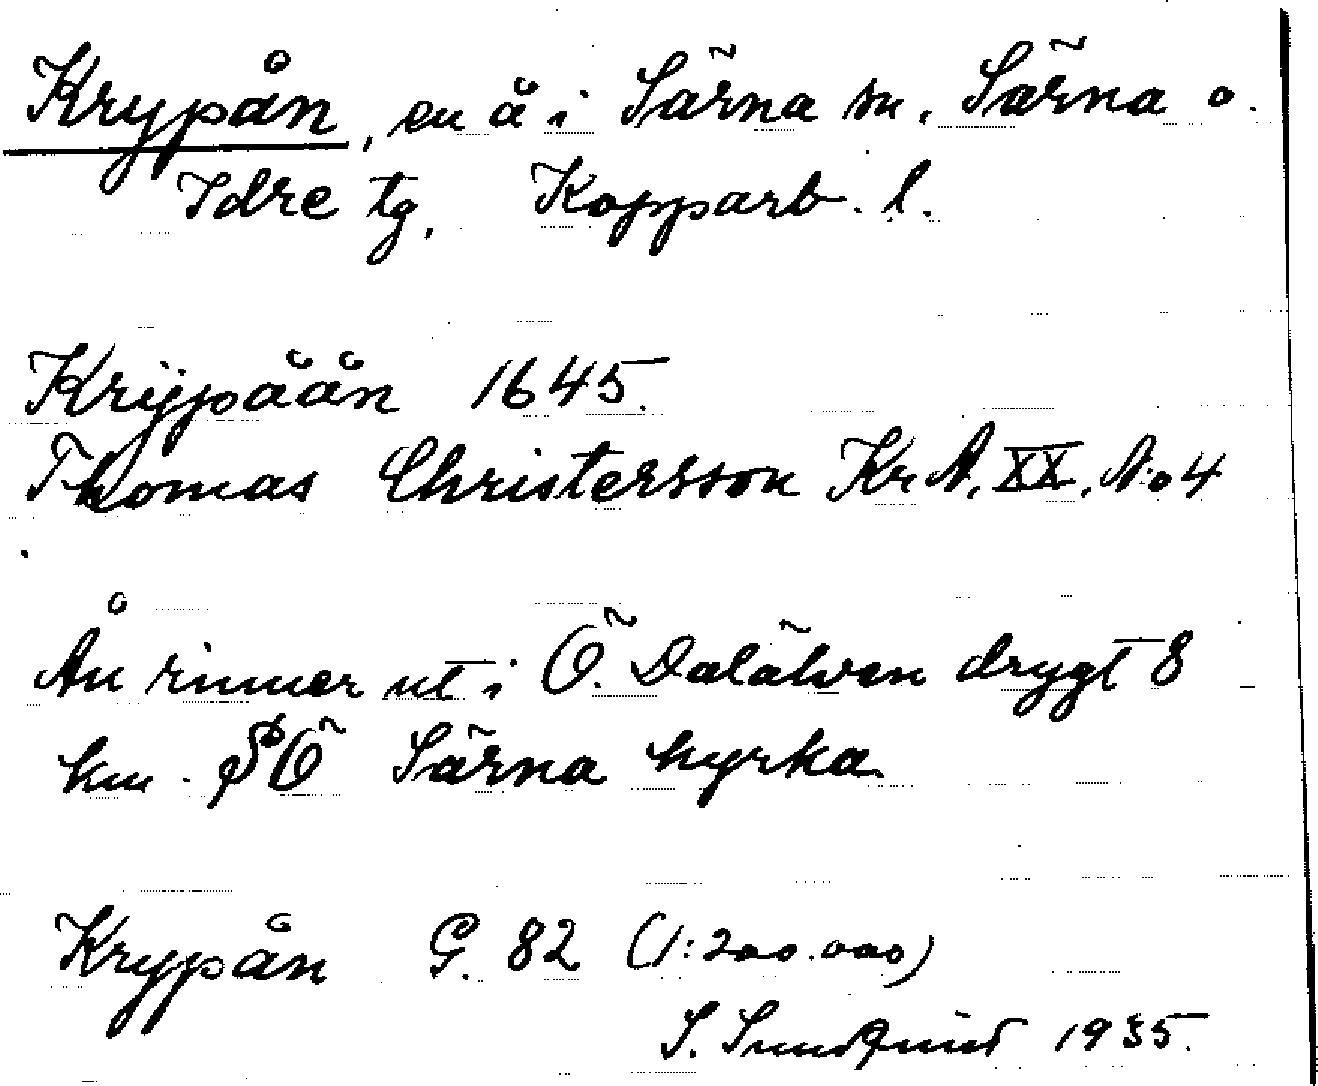 Krypån, en å i Särna sn, Särna o.
Idre tg, Kopparb. l.
Krÿpåån 1645.
Thomas Christersson Kr A. XX. No 4
Ån rinner ut i Ö. Dalälven drygt 8
km. SÖ Särna kyrka.
Krypån G. 82 (1:200.000)
S. Sundqvist 1935.